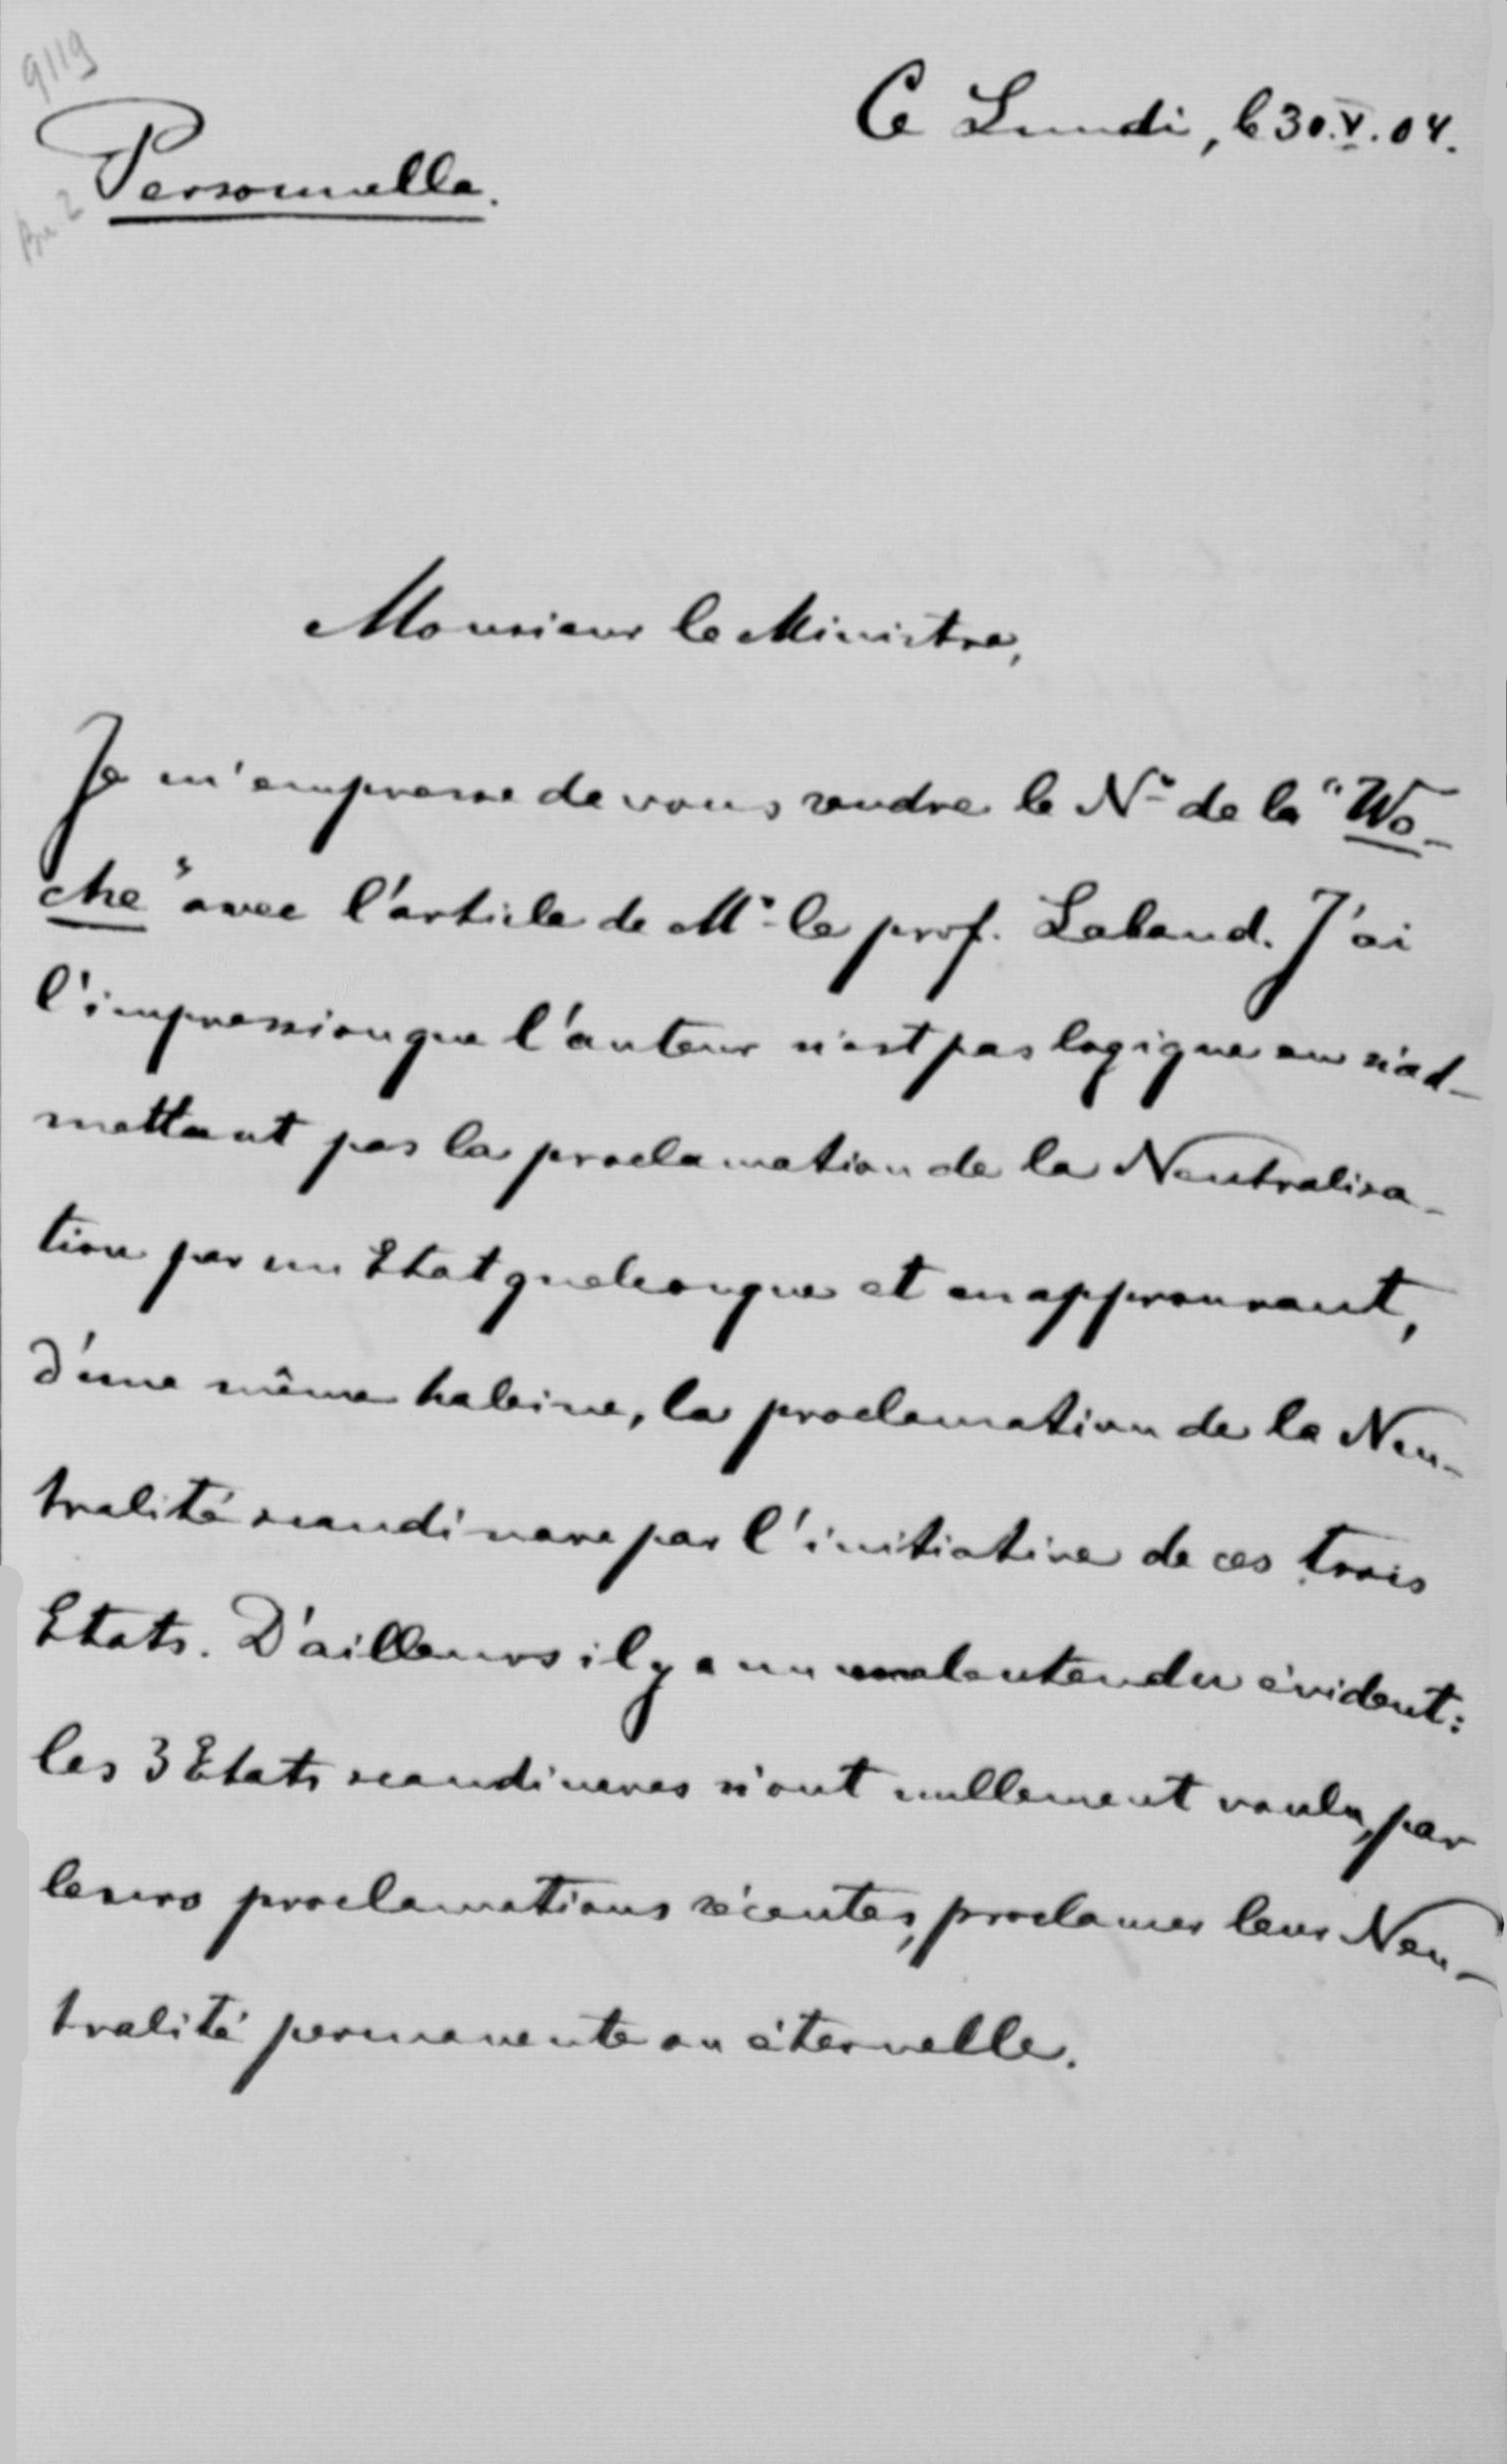 9119
Ce Lundi, le 30.V.04.
Personnelle.
Monsieur le Ministre,
Je m'empresse de vous rendre le No de la "Wo-
che" avec l'article de Mr le prof. Laband. J'ai
l'impression que l'auteur n'est pas logique en n'ad-
mettant pas la proclamation de la Neutralisa-
tion par un Etat quelconque et en approuvant,
d'une même haleine, la proclamation de la Neu-
tralité scandinave par l'initiative de ces trois
Etats. D'ailleurs il y a un malentendu évident:
les 3 Etats scandinaves n'ont nullement voulu, par
leurs proclamations récentes, proclamer leur Neu-
tralité permanente ou éternelle.